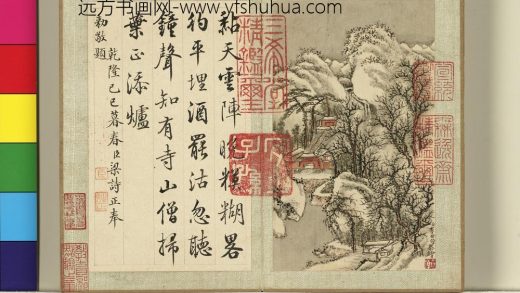 远方书画网-www.yfshuhua.com
黏天雲陣晚糢糊畧
彴平埋酒罷沽忽聽
鐘聲知有寺山僧掃
葉正添爐
乾隆己巳暮春臣梁詩正奉
敕敬題
三希堂
精鑑璽
宜
子孫